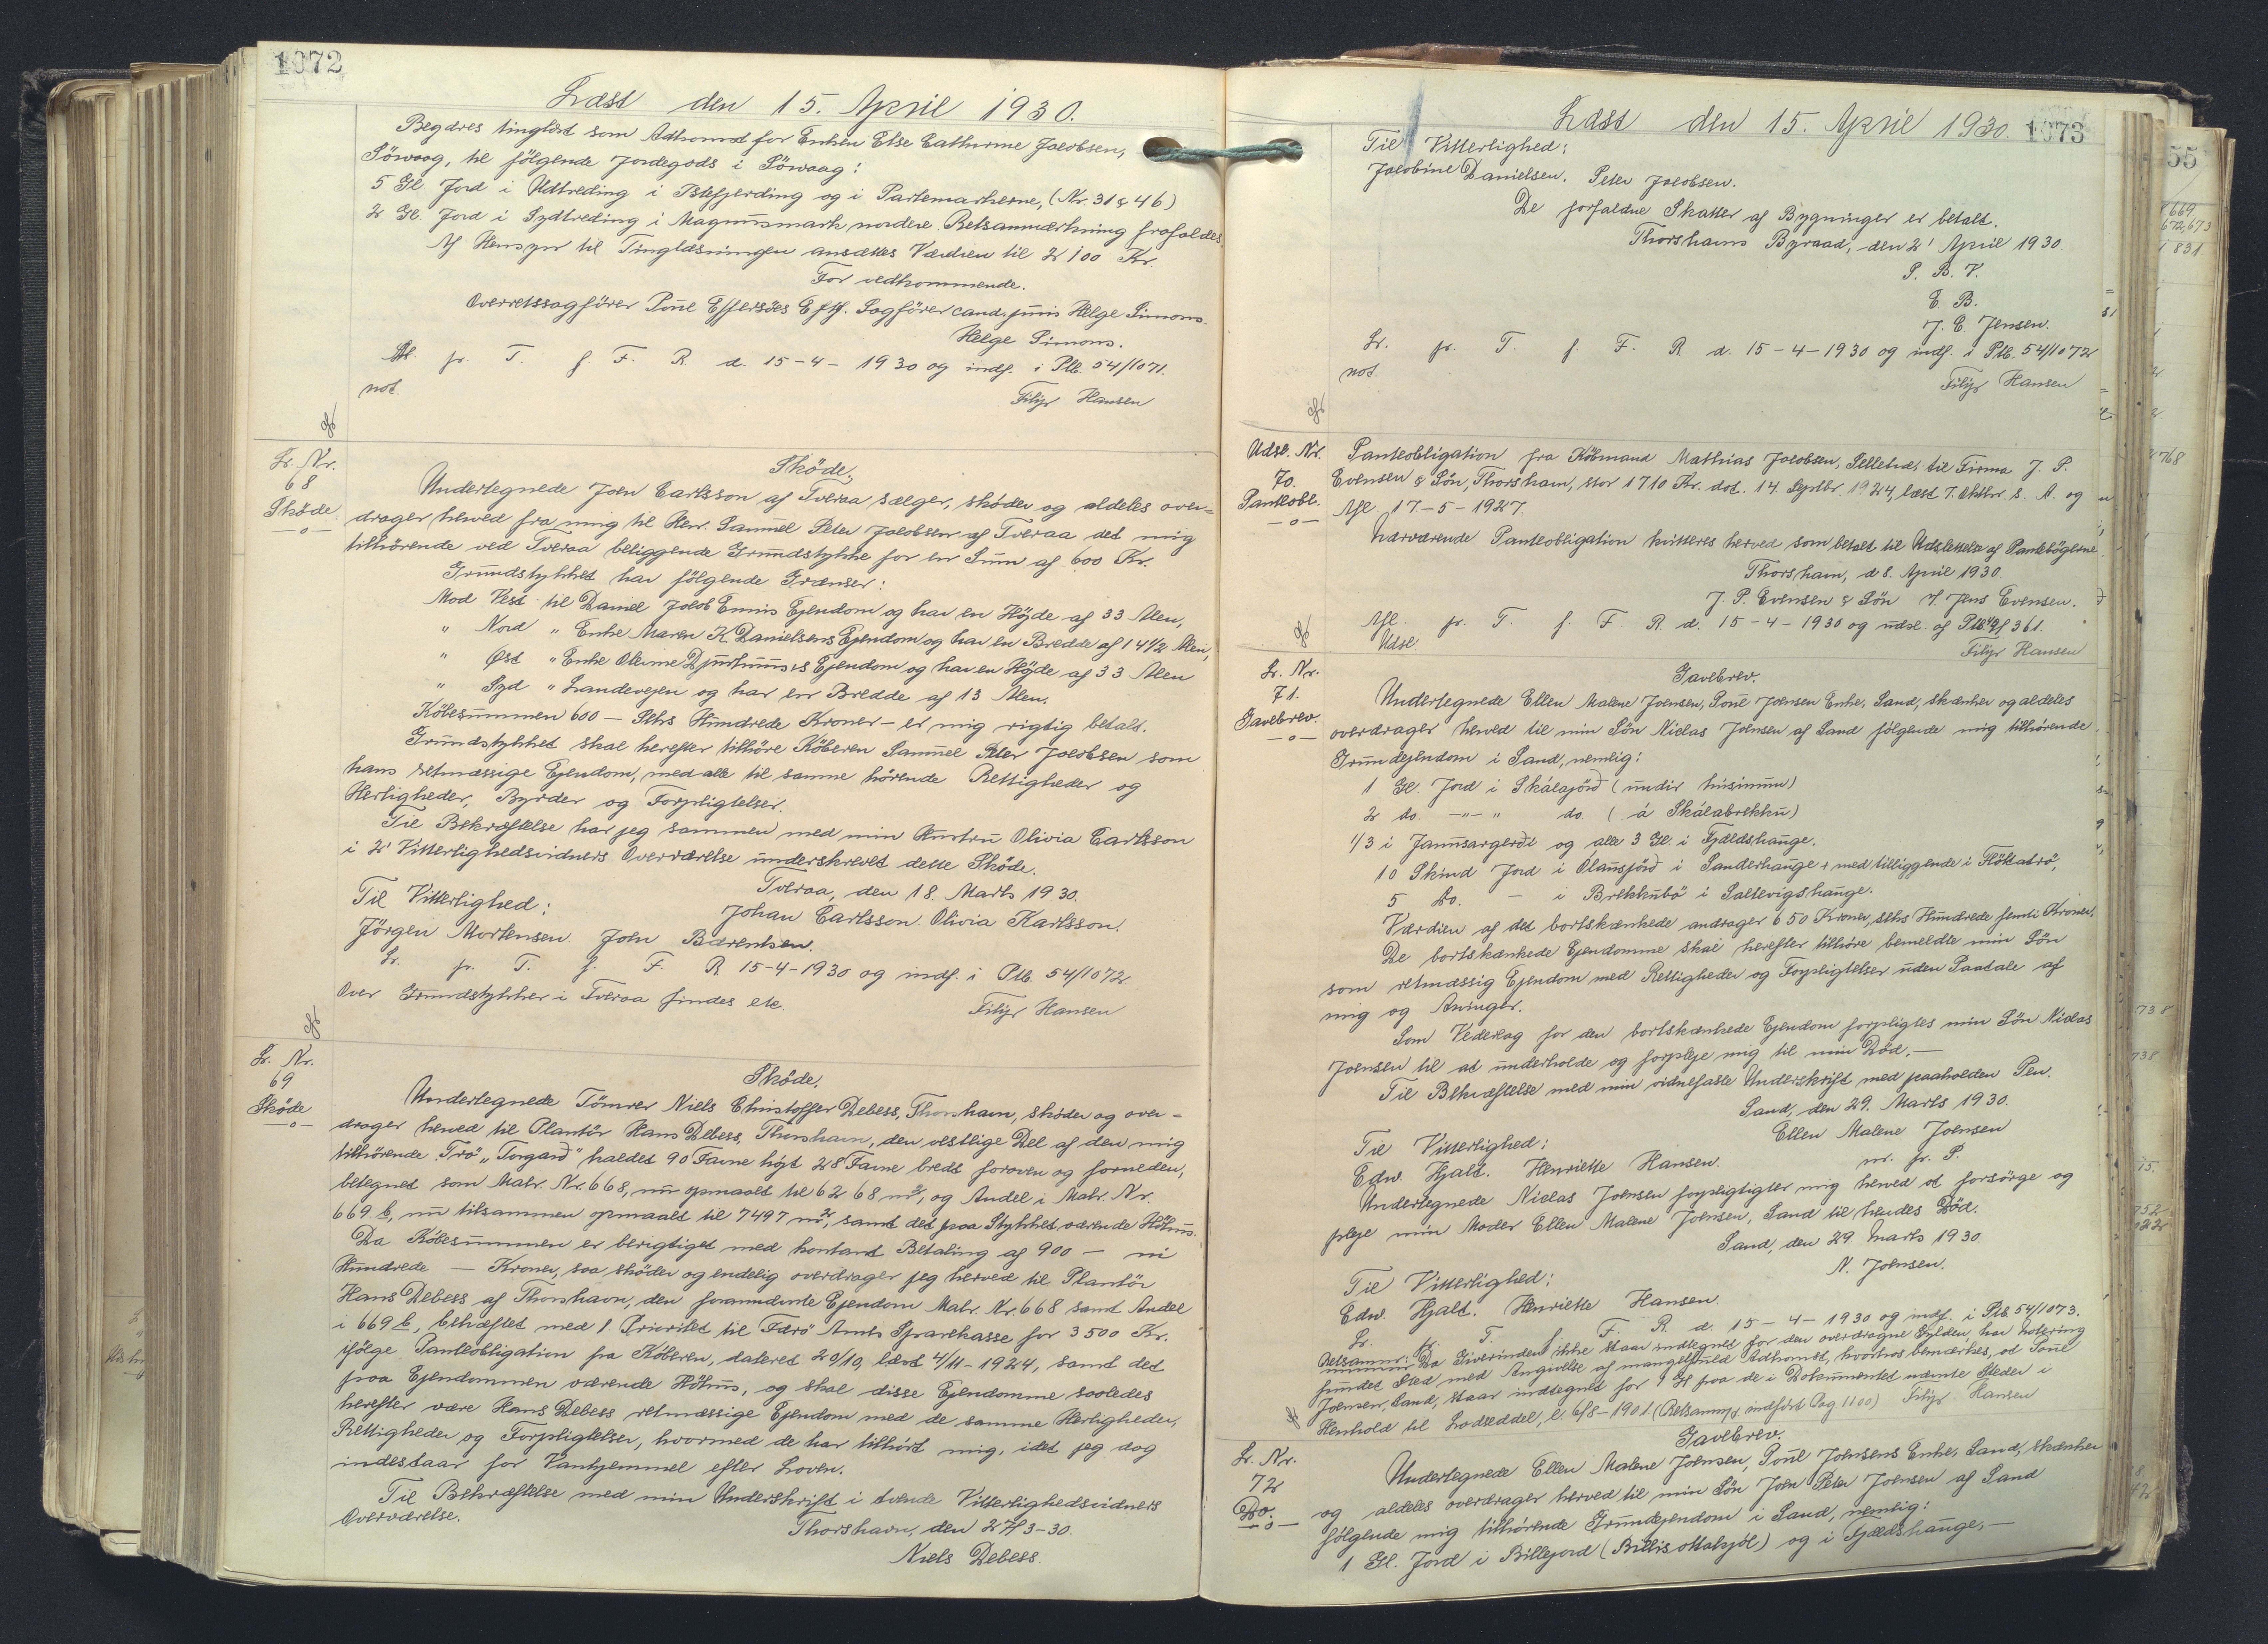 1072
Læst den 15. April 1930.
Begæres tinglæst som Adkomst for Enken Else Cathrine Jacobsen,
Sörvaag, til følgende Jordegods i Sörvaag:
5 Gl. Jord i Udtreding i Istefjerding og i Partemarkerne, (Nr. 31 & 46)
2 Gl. Jord i Sydtreding i Magnusmark nordere. Retsanmærkning frafaldes.
Af Hensyn til Tinglæsningen ansættes Værdien til 2100 Kr.
For vedkommende.
Overretssagfører Poul Effersöes Eftf. Sagfører cand. juris Helge Simons.
Helge Simons.
Afl. pr. T. f. F. R. d. 15-4-1930 og indf. i Ptb. 54/1071.
not.
Filip Hansen
Lr. Nr.
68
Sköde
Sköde.
Undertegnede Joen Carlsson af Tveraa sælger, sköder og aldeles over-
drager herved fra mig til Herr. Samuel Peter Jacobsen af Tveraa det mig
tilhörende ved Tveraa beliggende Grundstykke for en Sum af 600 Kr.
Grundstykket har fölgende Grænser:
Mod Vest til Daniel Jacob Ennis Ejendom og har en Höjde af 33 Alen,
" Nord " Enke Maren K. Danielsens Ejendom og har en Bredde af 14 1/2 Alen,
" Øst " Enke Olevine Djurhuus's Ejendom og har en Höjde af 33 Alen
" Syd " Landevejen og har en Bredde af 13 Alen.
Köbesummen 600 — Seks Hundrede Kroner — er mig rigtig betalt.
Grundstykket skal herefter tilhöre Köberen Samuel Peter Jacobsen som
hans retmæssige Ejendom, med alle til samme hörende Rettigheder og
Herligheder, Byrder og Forpligtelser.
Til Bekræftelse har jeg sammen med min Hustru Olivia Carlsson
i 2' Vitterlighedsvidners Overværelse underskrevet dette Sköde.
Tveraa, den 18. Marts 1930.
Til Vitterlighed:
Johan Carlsson. Olivia Karlsson.
Jörgen Mortensen. Joen Bærentsen.
Lr. pr. T. f. F. R. 15-4-1930 og indf. i Ptb. 54/1072.
Over Grundstykker i Tveraa findes etc.
Filip Hansen
Lr. Nr.
69
Sköde
Sköde.
Undertegnede Tömrer Niels Christoffer Debess, Thorshavn, sköder og over-
drager herved til Plantör Hans Debess, Thorshavn, den vestlige Del af den mig
tilhörende Trö "Torgard" kaldet 90 Favne högt 28 Favne bredt foroven og forneden,
betegnet som Matr. Nr. 668, nu opmaalt til 6268 m², og Andel i Matr. Nr.
669 b, nu tilsammen opmaalt til 7497 m², samt det paa Stykket værende Höhus.
Da Köbesummen er berigtiget med kontant Betaling af 900 — ni
Hundrede — Kroner, saa sköder og endelig overdrager jeg herved til Plantör
Hans Debess af Thorshavn, den forannævnte Ejendom Matr. Nr. 668 samt Andel
i 669 b, behæftet med 1. Prioritet til Færö Amts Sparekasse for 3500 Kr.
ifölge Panteobligation fra Köberen, dateret 20/10, læst 4/11-1924, samt det
paa Ejendommen værende Höhus, og skal disse Ejendomme saaledes
herefter være Hans Debess retmæssige Ejendom med de samme Herligheder,
Rettigheder og Forpligtelser, hvormed de har tilhört mig, idet jeg dog
indestaar for Vanhjemmel efter Loven.
Til Bekræftelse med min Underskrift i tvende Vitterlighedsvidners
Overværelse.
Thorshavn, den 27/3-30.
Niels Debess.
1073
Læst den 15. April 1930.
Til Vitterlighed:
Jacobine Danielsen. Peter Jacobsen.
De forfaldne Skatter af Bygninger er betalt.
Thorshavns Byraad, den 2' April 1930.
P. B. V.
E. B.
J. C. Jensen.
Lr. pr. T. f. F. R. d. 15-4-1930 og indf. i Ptb. 54/1072
not.
Filip Hansen
Udsl. Nr.
70.
Panteobl.
Panteobligation fra Köbmand Mathias Jacobsen, Selletræ, til Firma J. P.
Evensen & Sön, Thorshavn, stor 1710 Kr. dat. 14. Septbr. 1924, læst 7. Oktbr. s. A. og
Afl. 17-5-1927.
Nærværende Panteobligation kvitteres herved som betalt til Udslettelse af Pantebögerne.
Thorshavn, d 8. April 1930.
J. P. Evensen & Sön Jens Evensen.
Afl. pr. T. f. F. R. d. 15-4-1930 og udsl. af Ptb. 361.
Udsl.
Filip Hansen
Lr. Nr.
71.
Gavebrev.
Gavebrev.
Undertegnede Ellen Malene Joensen, Poul Joensen Enke, Sand, skænker og aldeles
overdrager herved til min Sön Niclas Joensen af Sand fölgende mig tilhörende
Grundejendom i Sand, nemlig:
1 Gl. Jord i Skálajörð (undir húsinum)
2 do. -"- " do. (á Skálabrekku)
1/3 i Jannsargerdi og alle 3 Gl. i Fjældshauge.
10 Skind Jord i Olausjörð i Sanderhauge + med tilliggende i Flökatrö,
5 do. — i Brekkubö i Saltevigshauge.
Værdien af det bortskænkede andrager 650 Kroner, seks Hundrede femti Kroner.
De bortskænkede Ejendomme skal herefter tilhöre bemeldte min Sön
som retmæssig Ejendom med Rettigheder og Forpligtelser uden Paatale af
mig og Arvinger.
Som Vederlag for den bortskænkede Ejendom forpligtes min Sön Niclas
Joensen til at underholde og forpleje mig til min Död. —
Til Bekræftelse med min vidnefaste Underskrift med paaholden Pen.
Sand, den 29. Marts 1930.
Ellen Malene Joensen
Til Vitterlighed:
m. p. P.
Edw. Hjalt. Henriette Hansen.
Undertegnede Niclas Joensen forpligtigter mig herved at forsörge og
pleje min Moder Ellen Malene Joensen, Sand til hendes Död.
Sand, den 29 Marts 1930
N. Joensen.
Til Vitterlighed:
Edw. Hjalt. Henriette Hansen.
Lr. pr. T. f. F. R. d. 15-4-1930 og indf. i Ptb. 54/1073.
Retsanm: Da Giverinden ikke staar indtegnet for den overdragne Gylden, har Notering
fundet Sted med Angivelse af mangelfuld Adkomst, hvorhos bemærkes, at Poul
Joensen, Sand, staar indtegnet for 9 Gl paa de i Dokumentet nævnte Steder i
Henhold til Lodseddel, l. 6/8-1901 (Retsanm. indfört Pag 1100) Filip Hansen
Lr. Nr.
72
Do.
Gavebrev.
Undertegnede Ellen Malene Joensen, Poul Joensens Enke, Sand, skænker
og aldeles overdrager herved til min Sön Joen Peter Joensen af Sand
fölgende mig tilhörende Grundejendom i Sand, nemlig:
1 Gl. Jord i Billejord (Billis ) og i Fjældshauge, —
55
669
672,673
831
768
738
738
15.